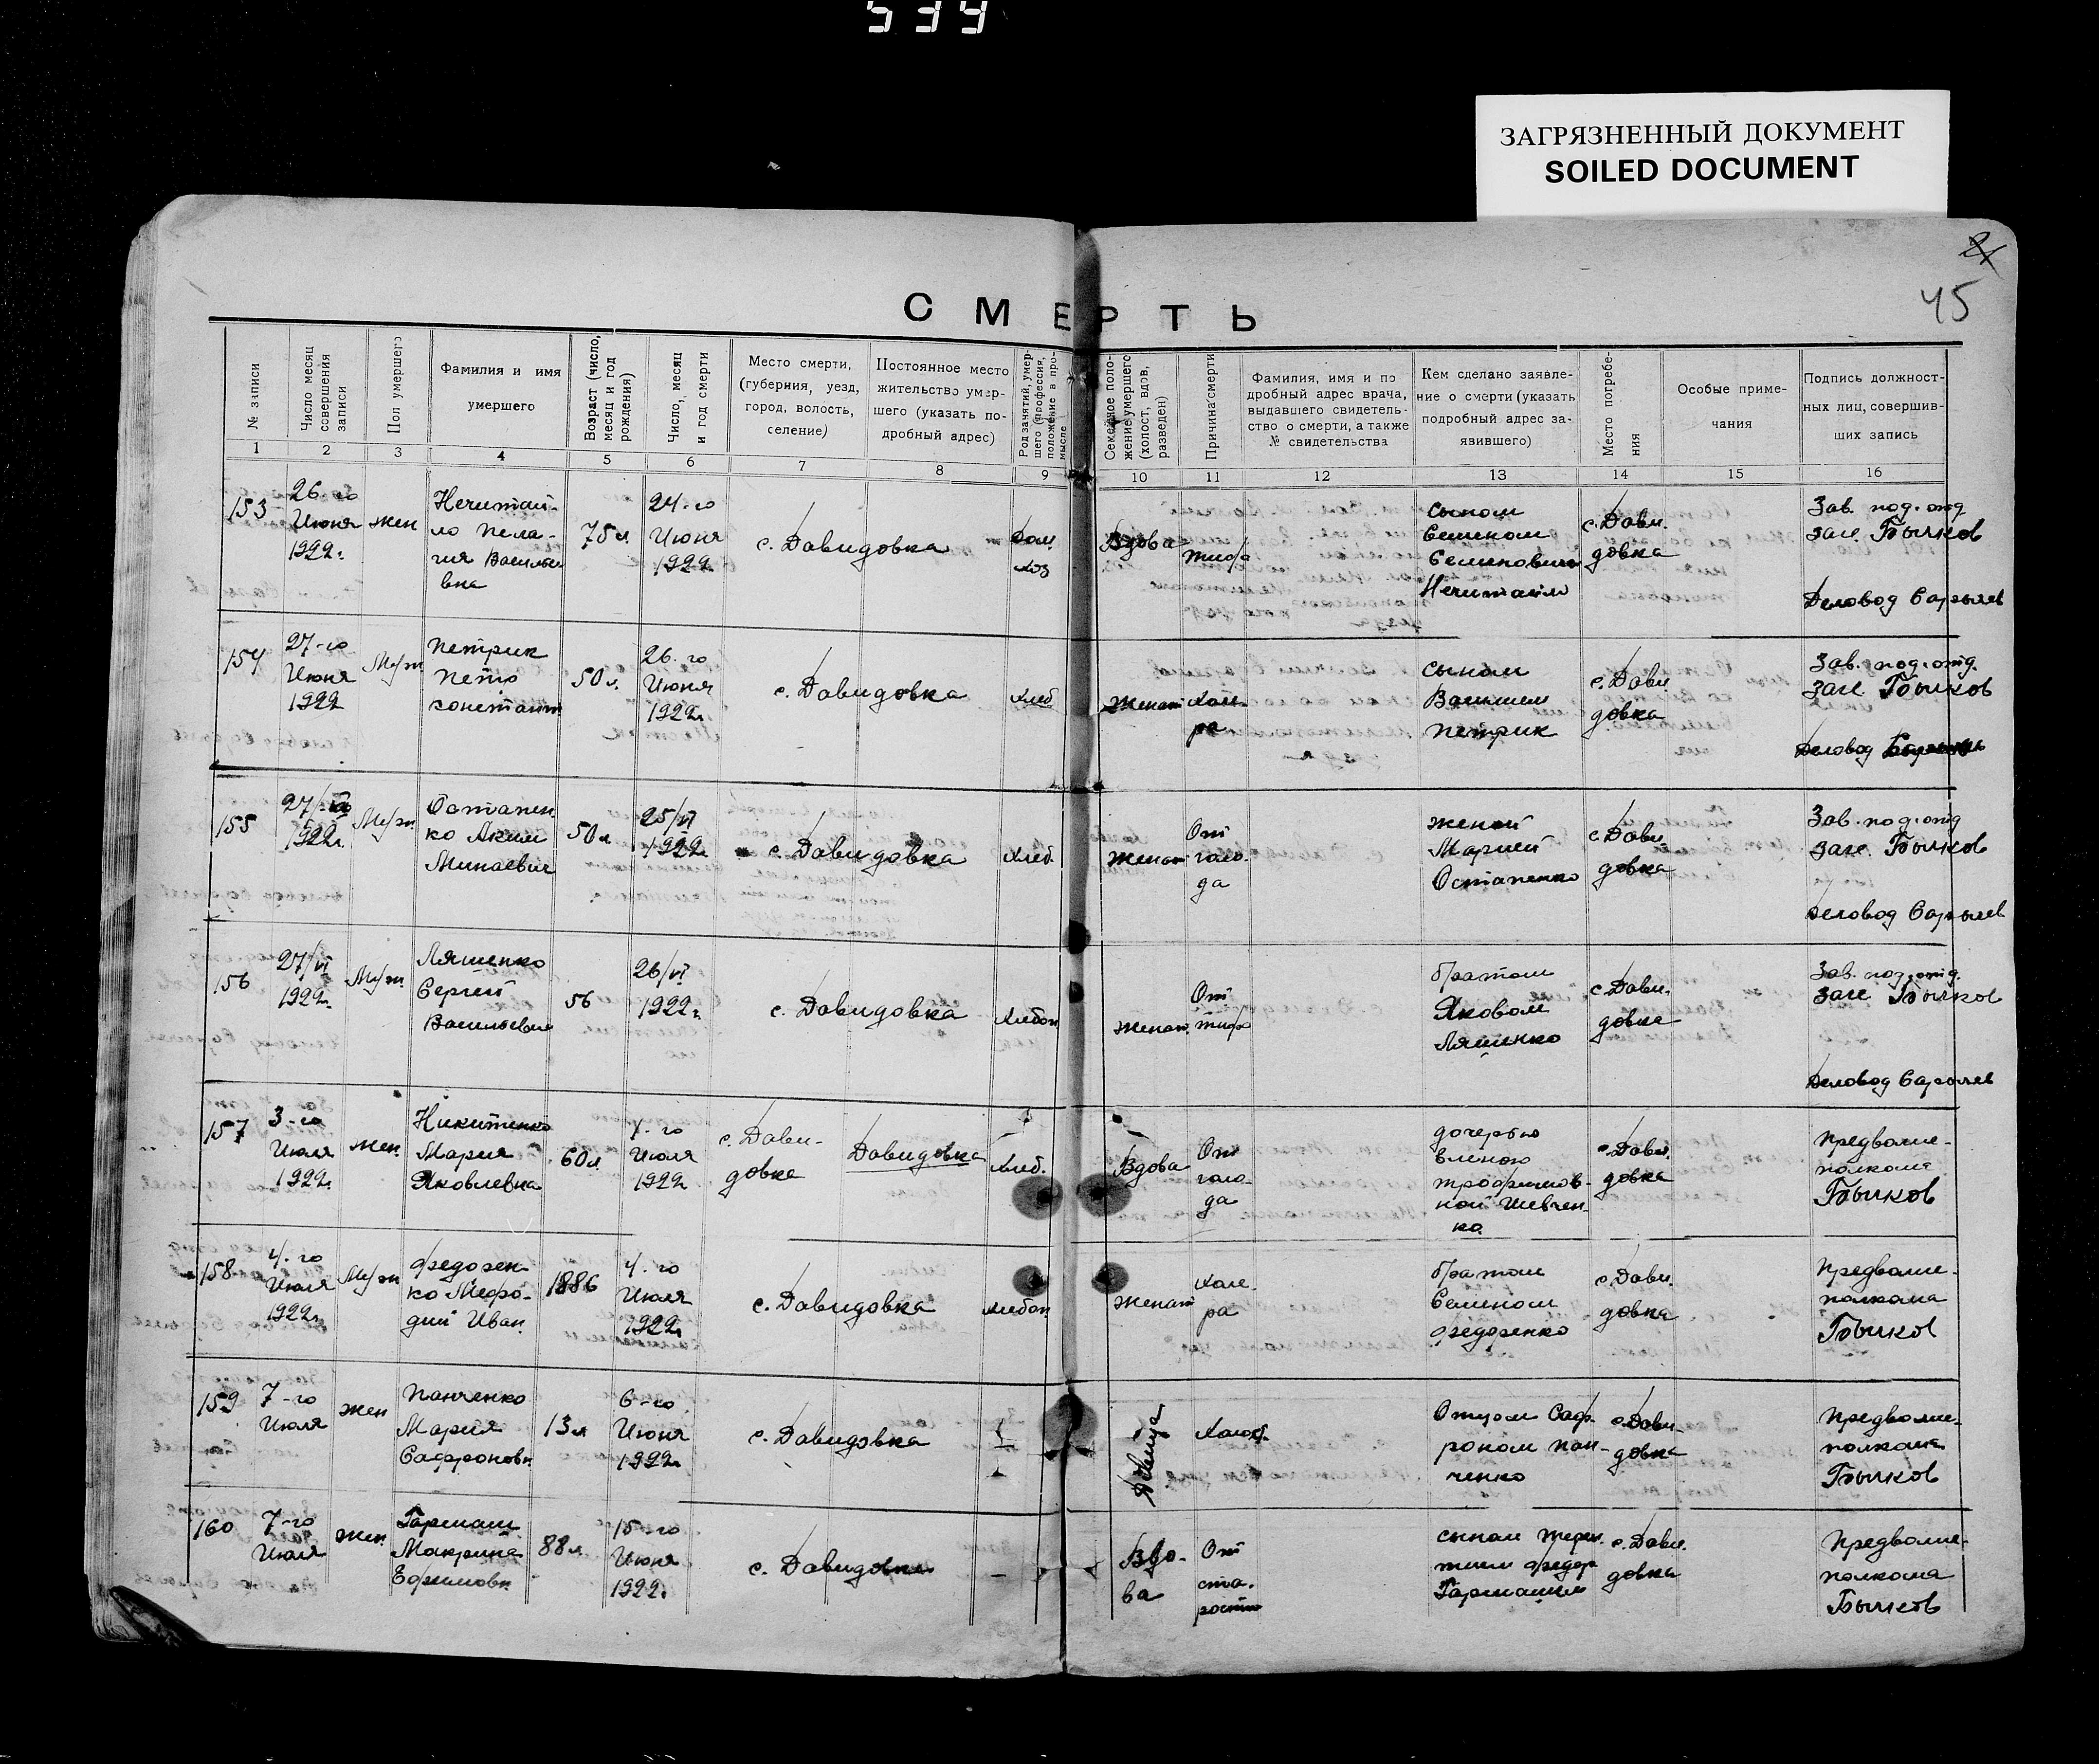 539
ЗАГРЯЗНЕННЫЙ ДОКУМЕНТ
SOILED DOCUMENT
45
СМЕРТЬ
№ записи
Число месяц
совершения
записи
Пол умершего
Фамилия и имя
умершего
Возраст (число,
месяц и год
рождения)
Число, месяц
и год смерти
Место смерти,
(губерния, уезд,
город, волость,
селение)
Постоянное место
жительство умер-
шего (указать по-
дробный адрес)
Род занятий, умер-
шего (профессия,
положение в про-
мысле
жение умершего
(холост, вдов,
разведен)
Причина смерти
Фамилия, имя и по
дробный адрес врача,
выдавшего свидетель-
ство о смерти, а также
№ свидетельства
Кем сделано заявле-
ние о смерти (указать
подробный адрес за-
явившего)
Место погребе-
ния
Особые приме-
чания
Подпись должност-
ных лиц, совершив-
ших запись
1 2 3 4 5 6 7 8 9 10 11 12 13 14 15 16
153
26-го
Июня
1922г.
жен
Нечитай-
ло Пела-
гия Василье
вна
75л
24-го
Июня
1922
с. Давидовка
дом.
хоз
Вдова
тифа
сыном
Семеном
Семенович
Нечитайло
с. Дави.
довка
Зав. под. отд
заг. Бычков
Деловод
154
27-го
Июня
1922
Муж.
Петрик
Петр
констант
50л.
26-го
Июня
1922г
с. Давидовка
хлеб
Женат
Холе-
ра
сыном
Василием
Петрик
с. Дави
довка
Зав. под. отд.
заг. Бычков
Деловод
155
27/VI
1922г.
Муж.
Остапен
ко Аким
Минаевич
50л
25/VI
1922г.
с. Давидовка
хлеб.
женат
От
голо-
да
женой
Марией
Остапенко
с. Дави
довка
Зав. под. отд
заг. Бычков
Деловод
156
27/VI
1922г.
Муж.
Ляшенко
Сергей
Васильевич
56
26/VI
1922г
с. Давидовка
хлебоп
женат.
От
тифа
братом
Яковом
Ляшенко
с. Дави.
довка
Зав. под. отд.
заг Бычков
Деловод
157
3-го
Июля
1922.
жен.
Никитенко
Мария
Яковлевна
60л
1-го
Июля
1922
с. Дави-
довка
Давидовка
хлеб.
Вдова
От
голо-
да
дочерью
Еленою
трофимов-
ной Шевчен-
ко
с. Дави.
довка
Предволис-
полкома
Бычков
158
4-го
Июля
1922г.
Муж
Федорен-
ко Мефо-
дий Иван.
1886
4-го
Июля
1922г
с. Давидовка
хлебоп
женат
Холе.
ра
братом
Семеном
Федоренко
с. Дави.
довка
Предволис-
полкома
Бычков
159
7-го
Июля
жен
Панченко
Мария
Сафроновн
13л
6-го
Июня
1922г
с. Давидовка
Девица
Отцом Саф-
роном Пан-
ченко
с. Дави-
довка
Предволис-
полкома
Бычков
160
7-го
Июля
жен.
Гармаш
Макрина
Ефимовн
88л
15-го
Июня
1922г
с. Давидовка
Вдо-
ва
От
ста-
рости
с. Дави.
довка
Предволис-
полкома
Бычков